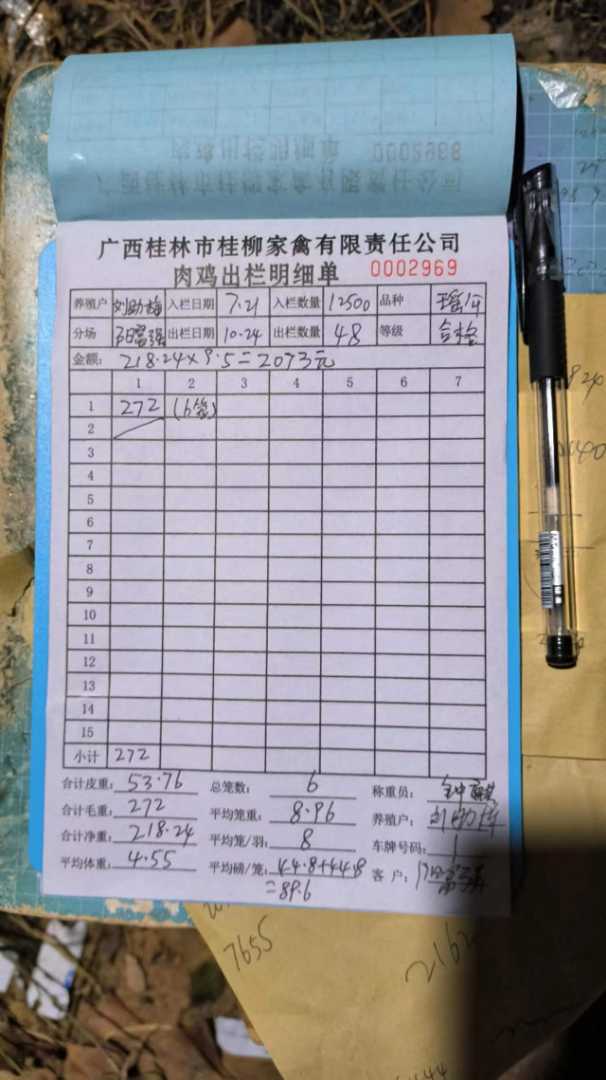 广西桂林市桂柳家禽有限责任公司
肉鸡出栏明细单 0002969
养殖户 刘助梅 入栏日期 7.21 入栏数量 12500 品种
分场 出栏日期 10.24 出栏数量 48 等级 合格
金额: 218.24×9.5=2073元
1 2 3 4 5 6 7
1 272 (6笼)
2
3
4
5
6
7
8
9
10
11
12
13
14
15
小计 272
合计皮重: 53.76 总笼数: 6 称重员:
合计毛重: 272 平均笼重: 8.96 养殖户: 刘助梅
合计净重: 218.24 平均笼/羽: 8 车牌号码:
平均体重: 4.55 平均磅/笼: 44.8+44.8 客 户:
=89.6
7655